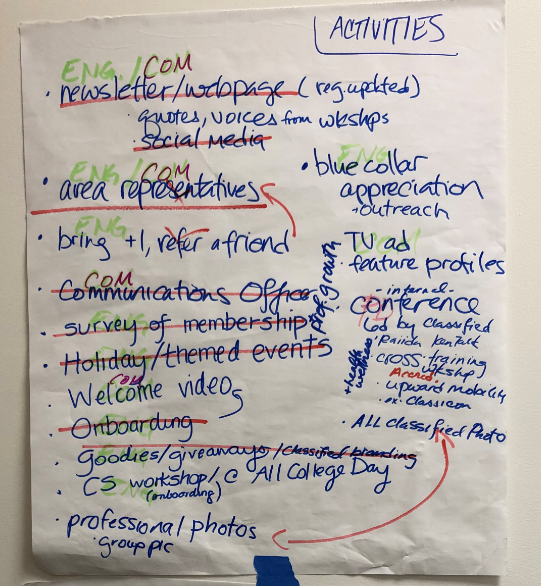 ACTIVITIES
ENG. / COM
· newsletter/webpage (reg. updated)
· quotes, voices from wkshps
· social media
ENG / COM
· area representatives
ENG
· bring +1, refer a friend
COM
· Communications Officer
· survey of membership
· Holiday/themed events
COM
· Welcome videos
· Onboarding
· Goodies/giveaways/classified branding
· CS workshop/@ All College Day
(onboarding)
· professional photos
· group pic
ENG
· blue collar
appreciation
+outreach
TV ad
· feature profiles
prof. growth
- internal -
conference
Led by classified
cross-training
wkshp
· upward mobility
+health
wellness
· ALL classified Photo